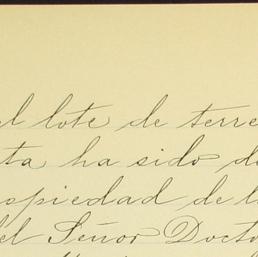 el lote de terre
ta ha sido de
opiedad de l
del Señor Docto